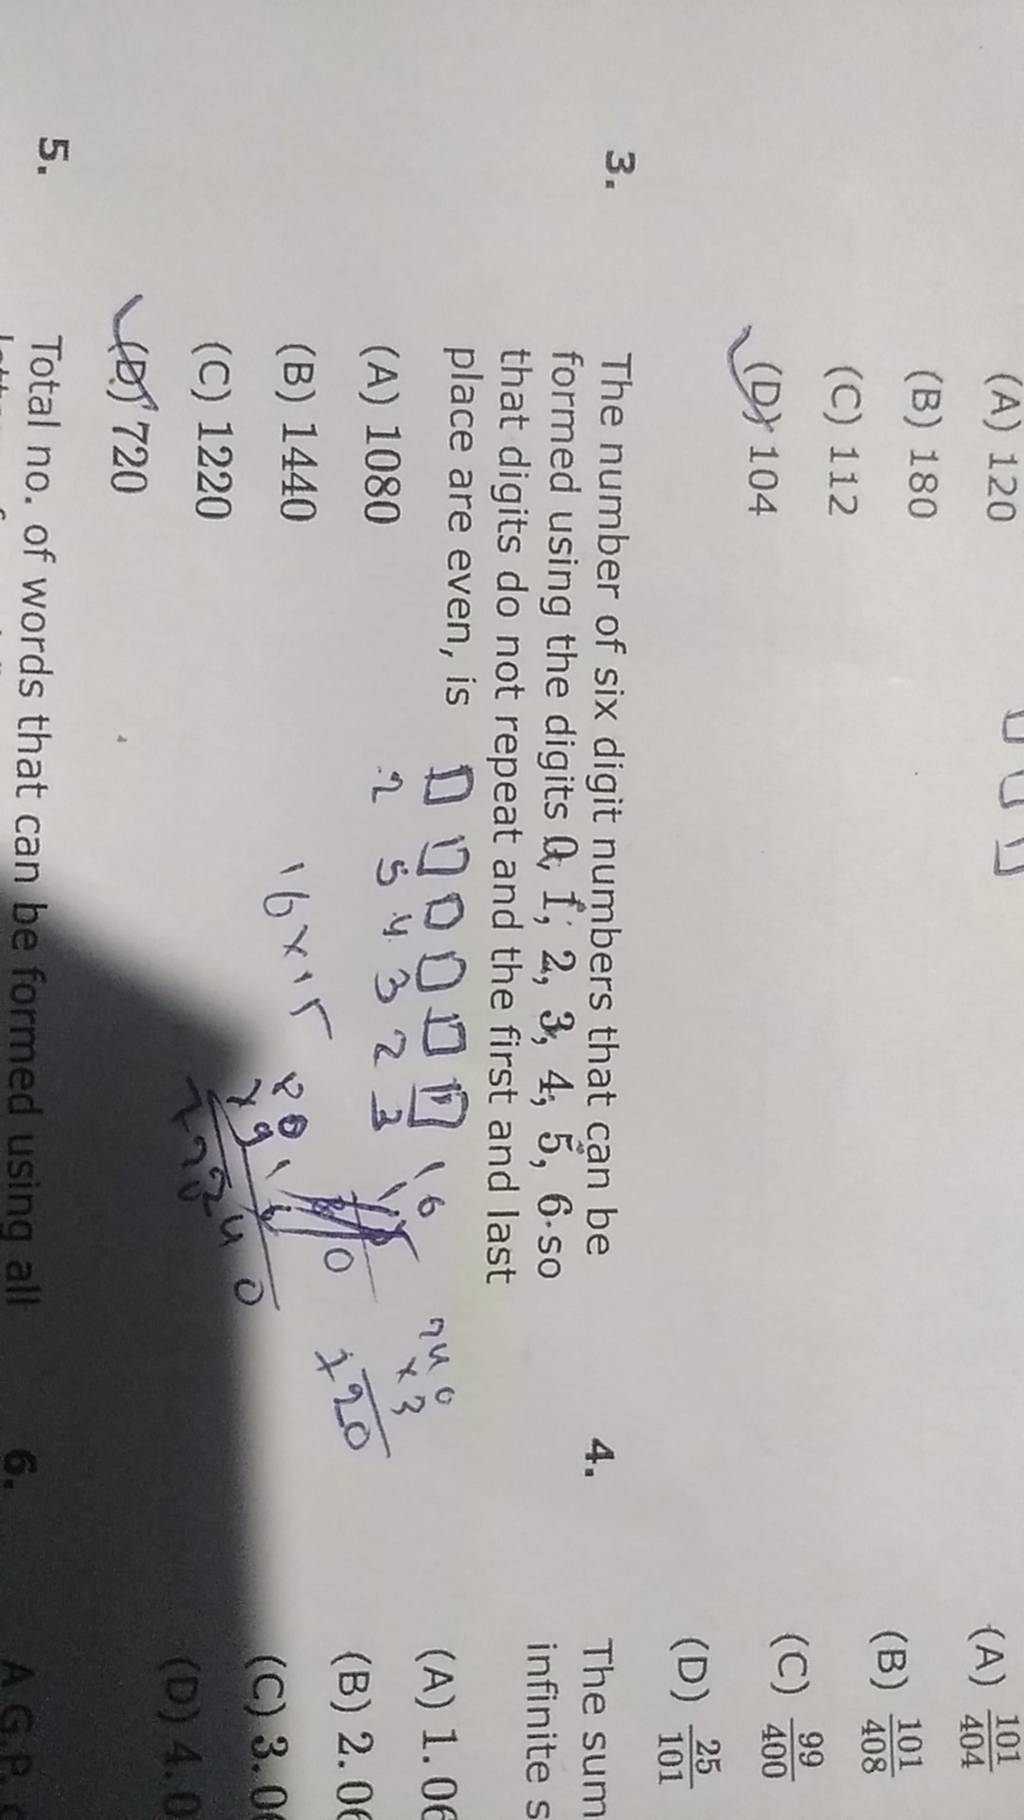 (A) 120
(B) 180
(C) 112
(D) 104
3. The number of six digit numbers that can be
formed using the digits 0, 1, 2, 3, 4, 5, 6 so
that digits do not repeat and the first and last
place are even, is
2 5 4 3 2 3
16
(A) 1080
(B) 1440
(C) 1220
(D) 720
16 × 15
240
× 3
720
5. Total no. of words that can be formed using all
(A) 101/404
(B) 101/408
(C) 99/400
(D) 25/101
4. The sum
infinite s
(A) 1.06
(B) 2.06
(C) 3.0
(D) 4.0
6. A G.P.